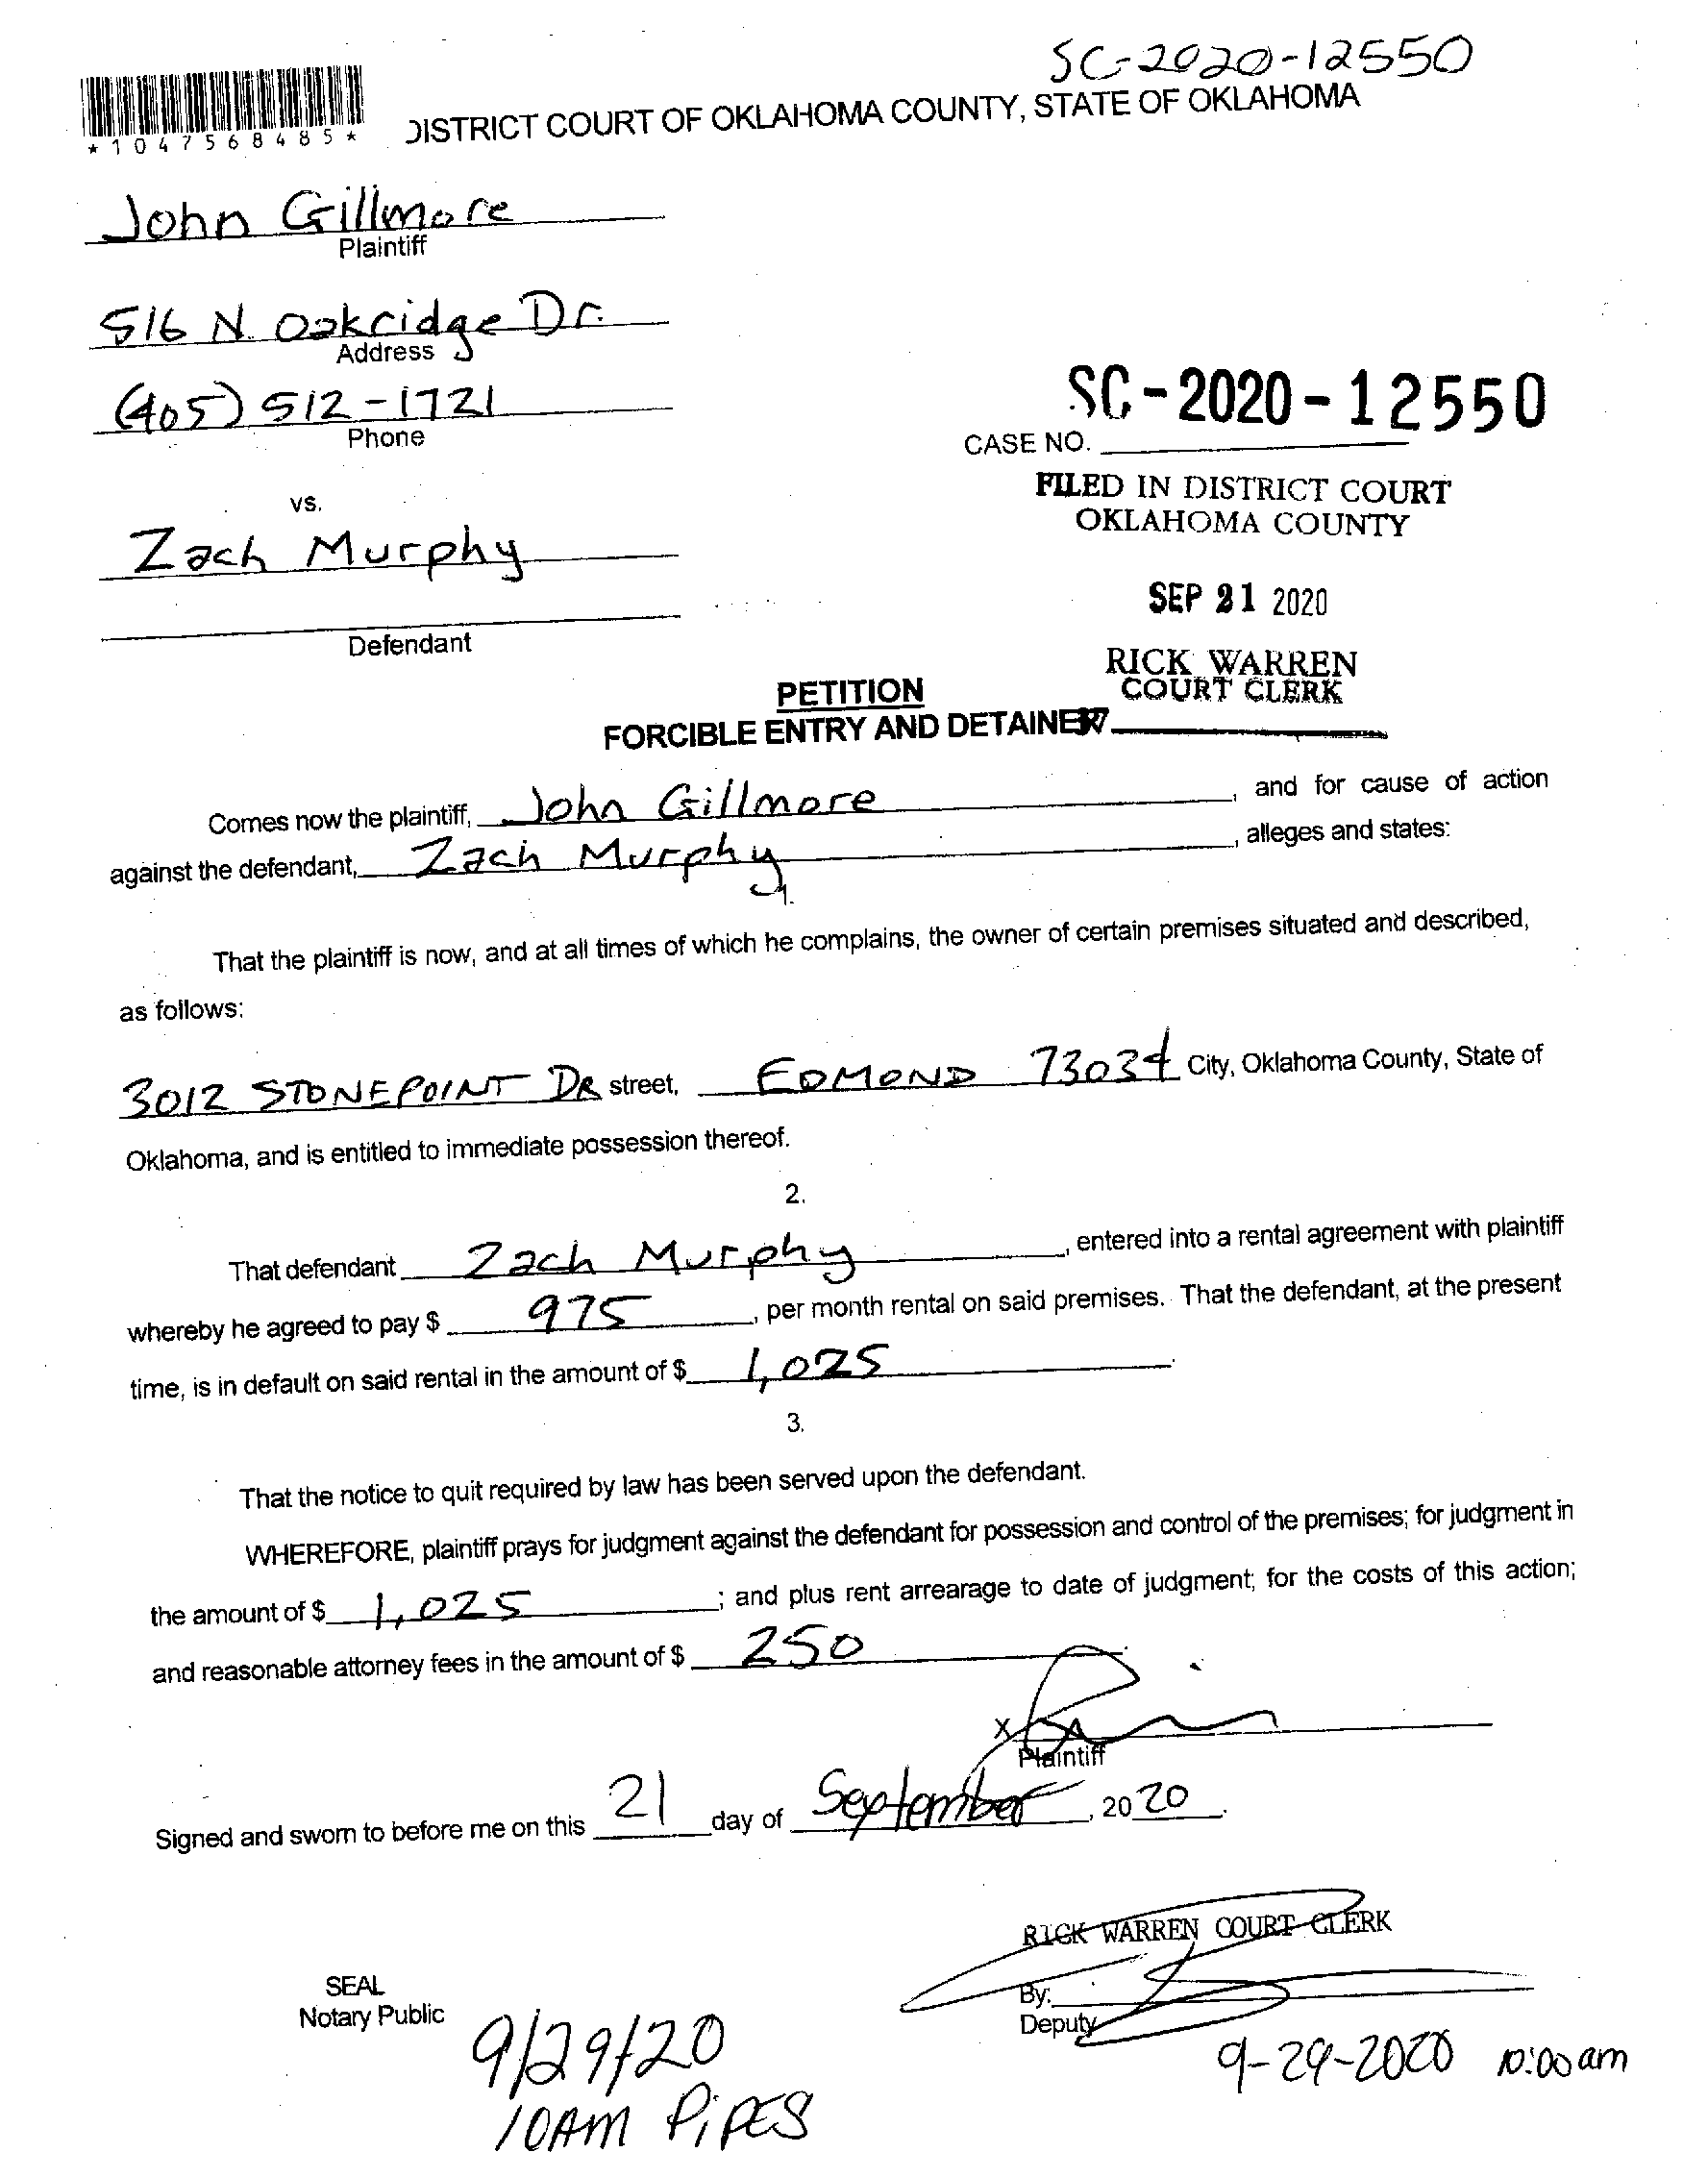 SC-2020-12550
*1047568485*
DISTRICT COURT OF OKLAHOMA COUNTY, STATE OF OKLAHOMA
John Gillmore
Plaintiff
516 N. Oakridge Dr.
Address
(405) 512-1721
Phone
SC-2020-12550
CASE NO.
FILED IN DISTRICT COURT
OKLAHOMA COUNTY
vs.
Zach Murphy
SEP 21 2020
Defendant
RICK WARREN
COURT CLERK
PETITION
FORCIBLE ENTRY AND DETAINER
37
Comes now the plaintiff, John Gillmore, and for cause of action
against the defendant, Zach Murphy, alleges and states:
1.
That the plaintiff is now, and at all times of which he complains, the owner of certain premises situated and described,
as follows:
3012 STONEPOINT DR street, EDMOND 73034 City, Oklahoma County, State of
Oklahoma, and is entitled to immediate possession thereof.
2.
That defendant Zach Murphy, entered into a rental agreement with plaintiff
whereby he agreed to pay $ 975, per month rental on said premises. That the defendant, at the present
time, is in default on said rental in the amount of $ 1,025.
3.
That the notice to quit required by law has been served upon the defendant.
WHEREFORE, plaintiff prays for judgment against the defendant for possession and control of the premises; for judgment in
the amount of $ 1,025; and plus rent arrearage to date of judgment; for the costs of this action;
and reasonable attorney fees in the amount of $ 250
X
Plaintiff
Signed and sworn to before me on this 21 day of September, 2020.
RICK WARREN COURT CLERK
SEAL
Notary Public
By:
Deputy
9/29/20
10AM PiPES
9-29-2020 10:00am